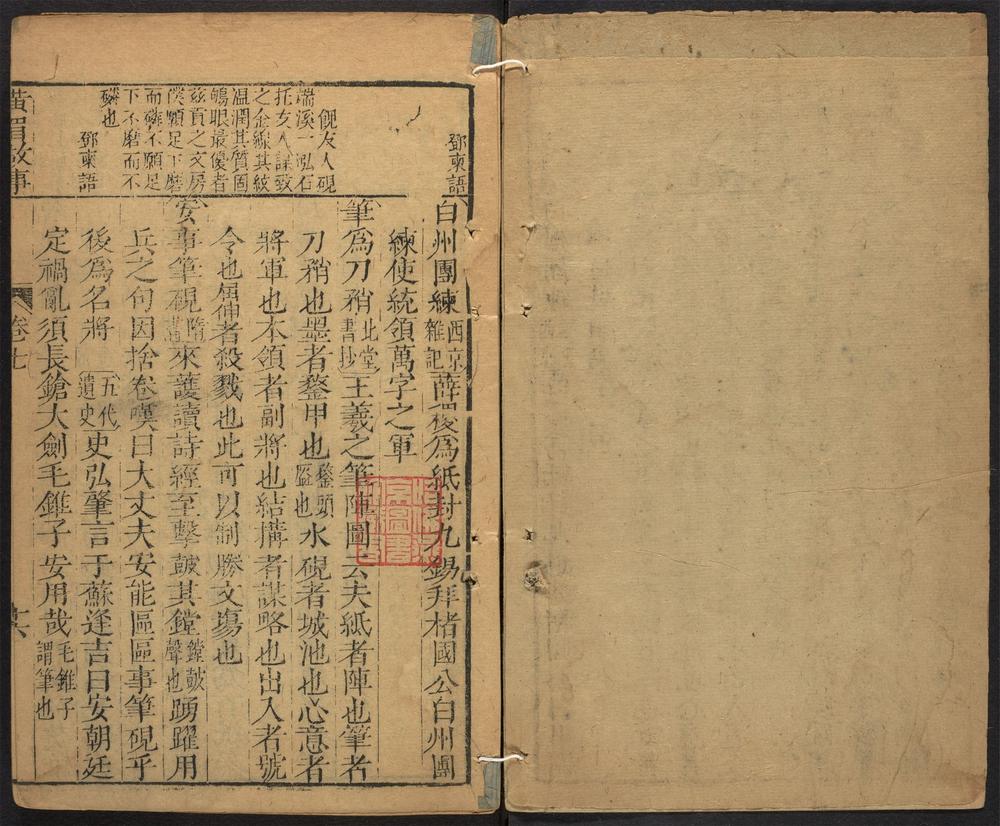 鄧柬語
覬友人硯
端溪一泓石
托友人謀致
之金線其紋
溫潤其質固
鴝眼最優者
玆貢之文房
僕願足下磨
而磷不願足
下不磨而不
磷也
鄧柬語
白州團練 西京雜記 薛稷為紙封九錫拜楮國公白州團
練使統領萬字之軍
筆爲刀矟 北堂書抄 王羲之筆陣圖云夫紙者陣也筆者
刀矟也墨者鍪甲也 鍪頭盔也 水硯者城池也心意者
將軍也本領者副將也結搆者謀略也出入者號
令也屈伸者殺戮也此可以制勝文塲也
安事筆硯 隋書 來護讀詩經至擊皷其鏜 鏜皷聲也 踴躍用
兵之句因捨卷嘆曰大丈夫安能區區事筆硯乎
後爲名將 五代遺史 史弘肇言于蘇逢吉曰安朝廷
定禍亂須長鎗大劍毛錐子安用哉 毛錐子謂筆也
黃眉故事
卷七